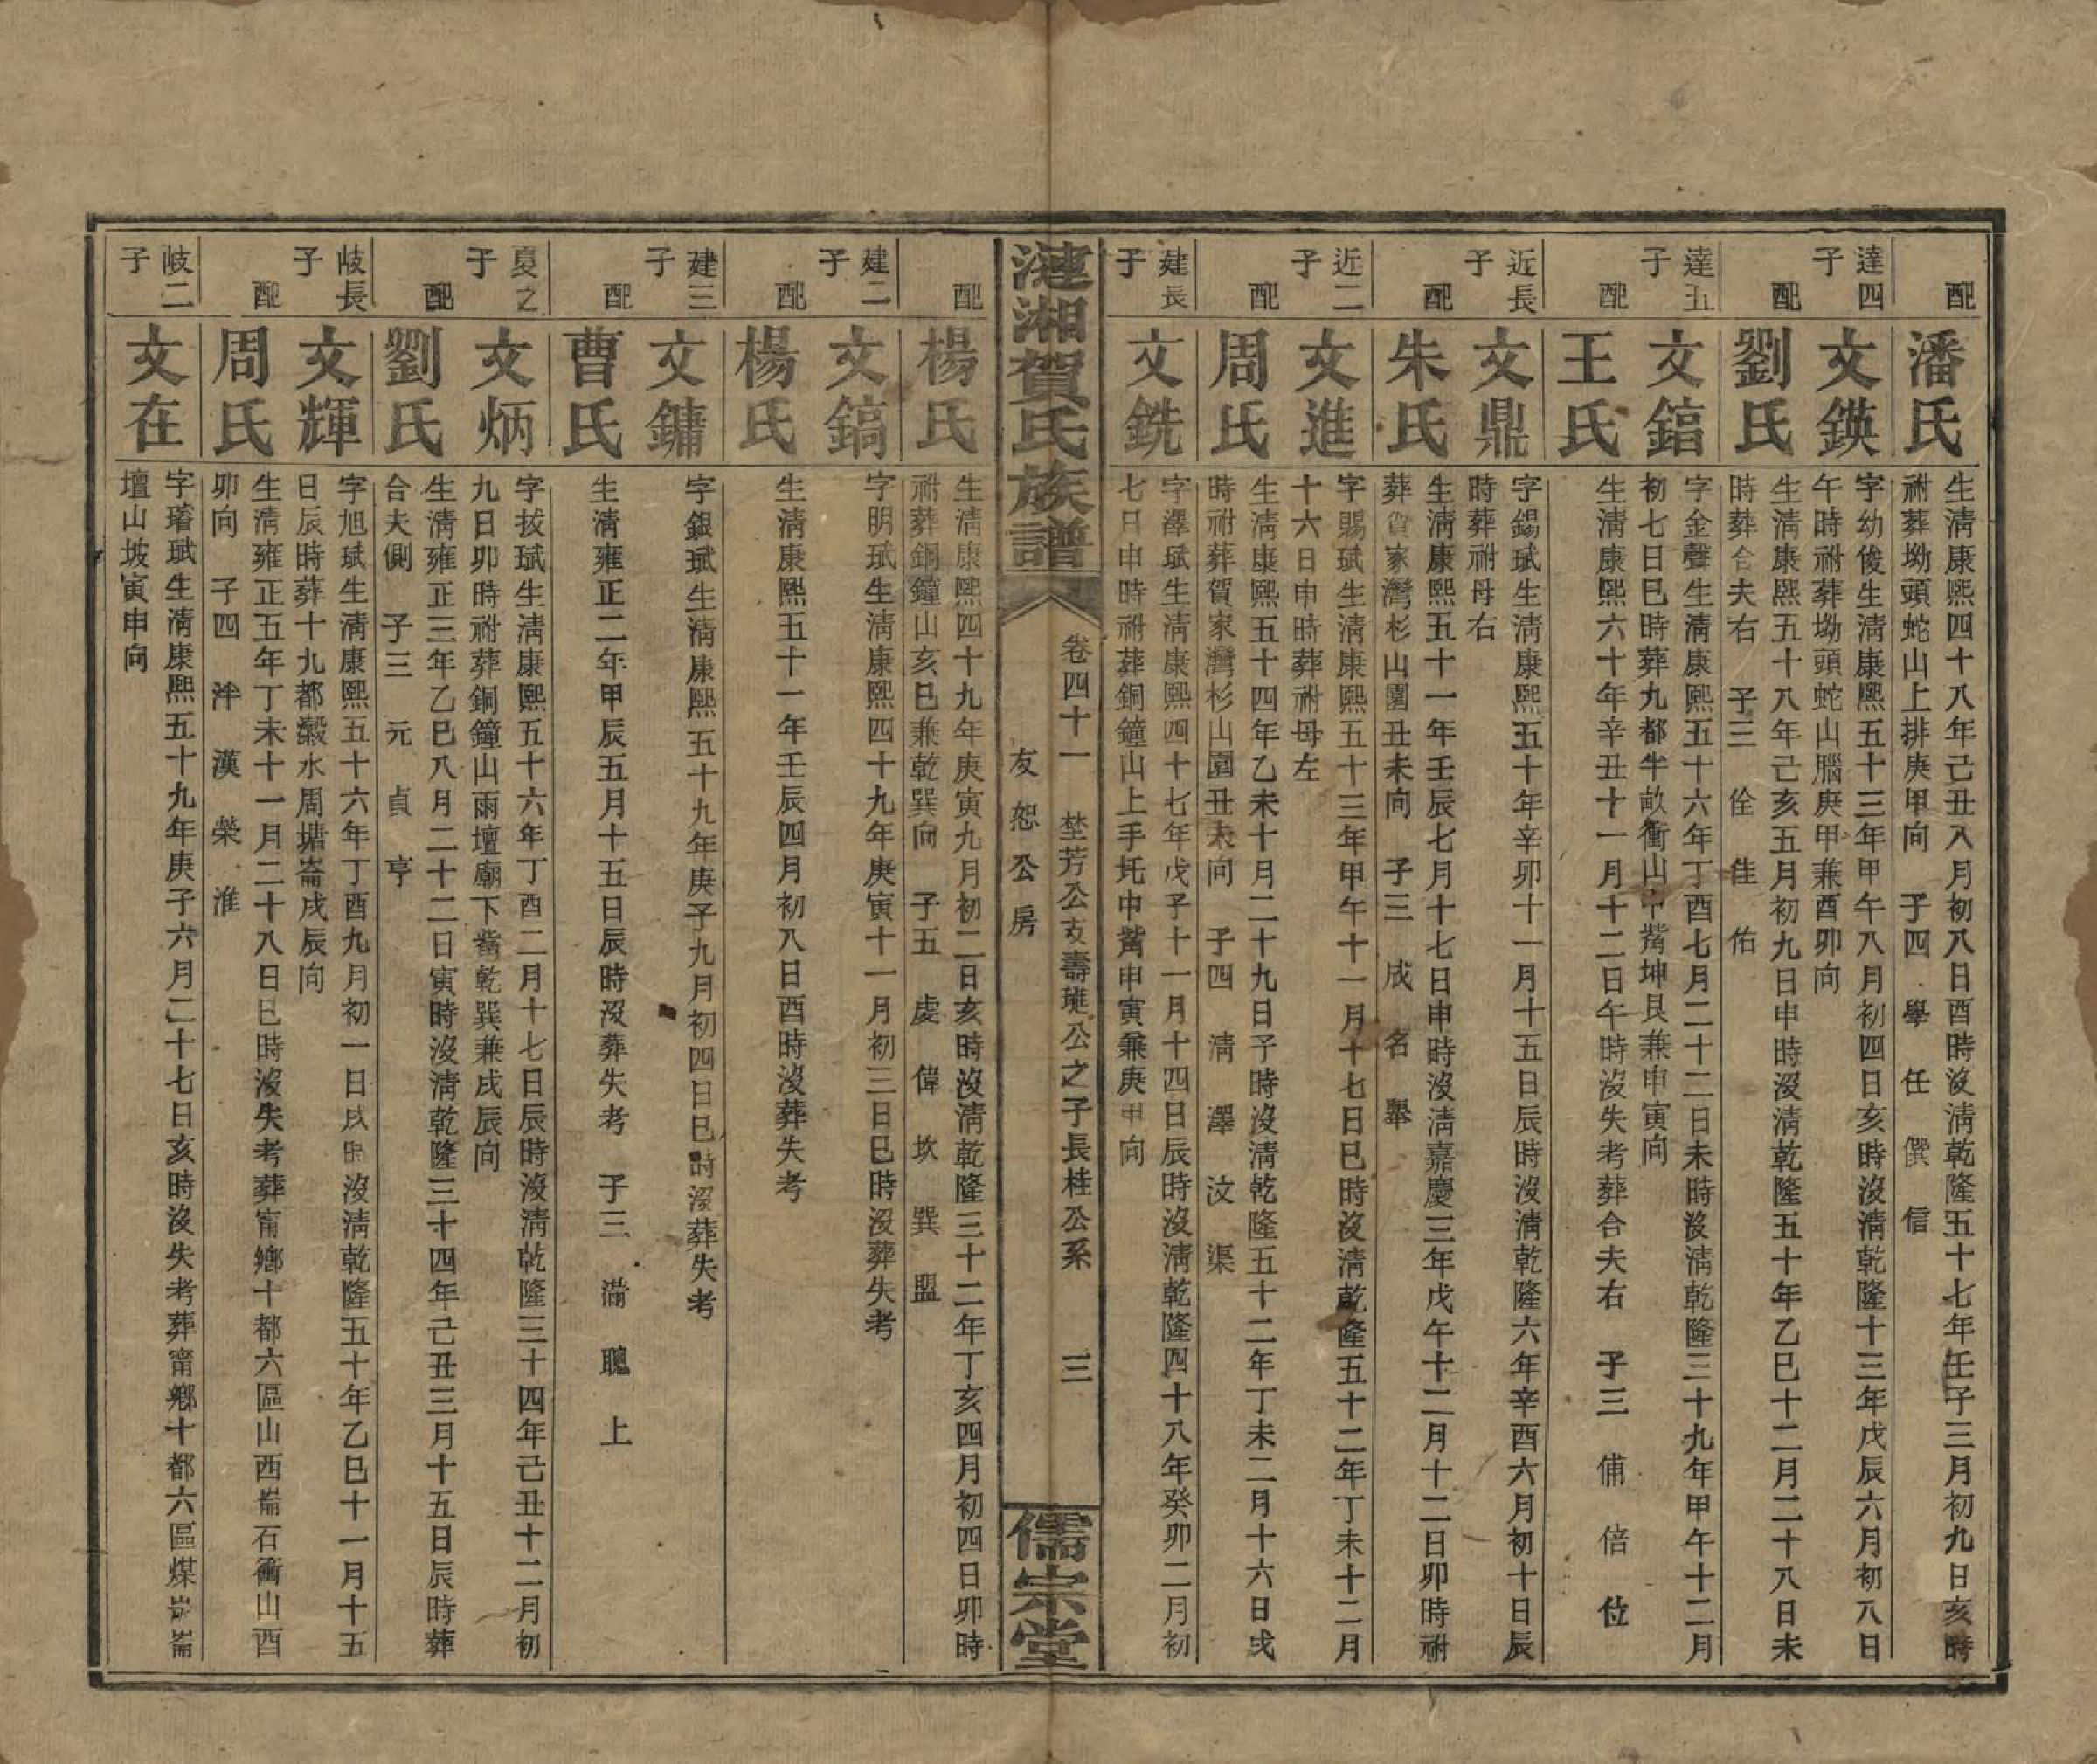 配
潘氏
生淸康熙四十八年己丑八月初八日酉時沒淸乾隆五十七年任子三月初九日亥時
祔葬坳頭蛇山上排庚甲向　子四　學　任　僎　信
達四
子
文鍈
字幼俊生淸康熙五十三年甲午八月初四日亥時沒淸乾隆十三年戊辰六月初八日
午時祔葬坳頭蛇山腦庚甲兼酉卯向
配
劉氏
生淸康熙五十八年己亥五月初九日申時沒淸乾隆五十年乙巳十二月二十八日未
時葬合夫右　子三　佺　佳　佑
達五
子
文鎬
字金聲生淸康熙五十六年丁酉七月二十二日未時沒淸乾隆三十九年甲午十二月
初七日巳時葬九都半畝衝山中觜坤艮兼申寅向
配
王氏
生淸康熙六十年辛丑十一月十二日午時沒失考葬合夫右　子三　俌　倍　位
近長
子
文鼎
字錫珷生淸康熙五十年辛卯十一月十五日辰時沒淸乾隆六年辛酉六月初十日辰
時葬祔母右
配
朱氏
生淸康熙五十一年壬辰七月十七日申時沒淸嘉慶三年戊午十二月十二日卯時祔
葬賀家灣杉山園丑未向　子三　成　名　舉
近二
子
文進
字賜珷生淸康熙五十三年甲午十一月十七日巳時沒淸乾隆五十二年丁未十二月
十六日申時葬祔母左
配
周氏
生淸康熙五十四年乙未十月二十九日子時沒淸乾隆五十二年丁未二月十六日戌
時祔葬賀家灣杉山園丑未向　子四　淸　澤　汶　渠
建長
子
文銑
字澤珷生淸康熙四十七年戊子十一月十四日辰時沒淸乾隆四十八年癸卯二月初
七日申時祔葬銅鐘山上手圫中觜申寅兼庚甲向
漣湘賀氏族譜
卷四十一　埜芳公支壽琟公之子長桂公系　三
友恕公房
儒宗堂
配
楊氏
生淸康熙四十九年庚寅九月初二日亥時沒淸乾隆三十二年丁亥四月初四日卯時
祔葬銅鐘山亥巳兼乾巽向　子五　虔　偉　坎　巽　盟
建二
子
文鎬
字明珷生淸康熙四十九年庚寅十一月初三日巳時沒葬失考
配
楊氏
生淸康熙五十一年壬辰四月初八日酉時沒葬失考
建三
子
文鏞
字銀珷生淸康熙五十九年庚子九月初四日巳時沒葬失考
配
曹氏
生淸雍正二年甲辰五月十五日辰時沒葬失考　子三　滿　聰　上
夏之
子
文炳
字拔珷生淸康熙五十六年丁酉二月十七日辰時沒淸乾隆三十四年己丑十二月初
九日卯時祔葬銅鐘山雨壇廟下觜乾巽兼戌辰向
配
劉氏
生淸雍正三年乙巳八月二十二日寅時沒淸乾隆三十四年己丑三月十五日辰時葬
合夫側　子三　元　貞　亨
岐長
子
文輝
字旭珷生淸康熙五十六年丁酉九月初一日戌時沒淸乾隆五十年乙巳十一月十五
日辰時葬十九都瀔水周塘崙戌辰向
配
周氏
生淸雍正五年丁未十一月二十八日巳時沒失考葬甯鄉十都六區山西崙石衝山酉
卯向　子四　泮　漢　榮　淮
岐二
子
文在
字璿珷生淸康熙五十九年庚子六月二十七日亥時沒失考葬甯鄉十都六區煤崙
壇山坡寅申向